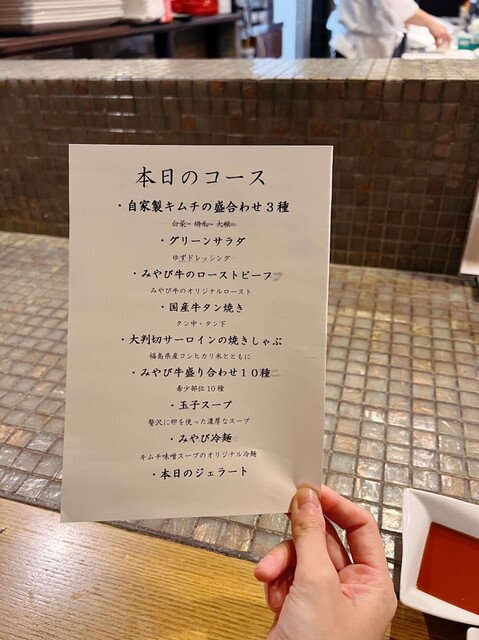 本日のコース
・自家製キムチの盛合わせ３種
白菜・胡瓜・大根
・グリーンサラダ
ゆずドレッシング
・みやび牛のローストビーフ
みやび牛のオリジナルロースト
・国産牛タン焼き
タン中・タン下
・大判切サーロインの焼きしゃぶ
福島県産コシヒカリ米とともに
・みやび牛盛り合わせ１０種
希少部位10種
・玉子スープ
贅沢に卵を使った濃厚なスープ
・みやび冷麺
キムチ味噌スープのオリジナル冷麺
・本日のジェラート